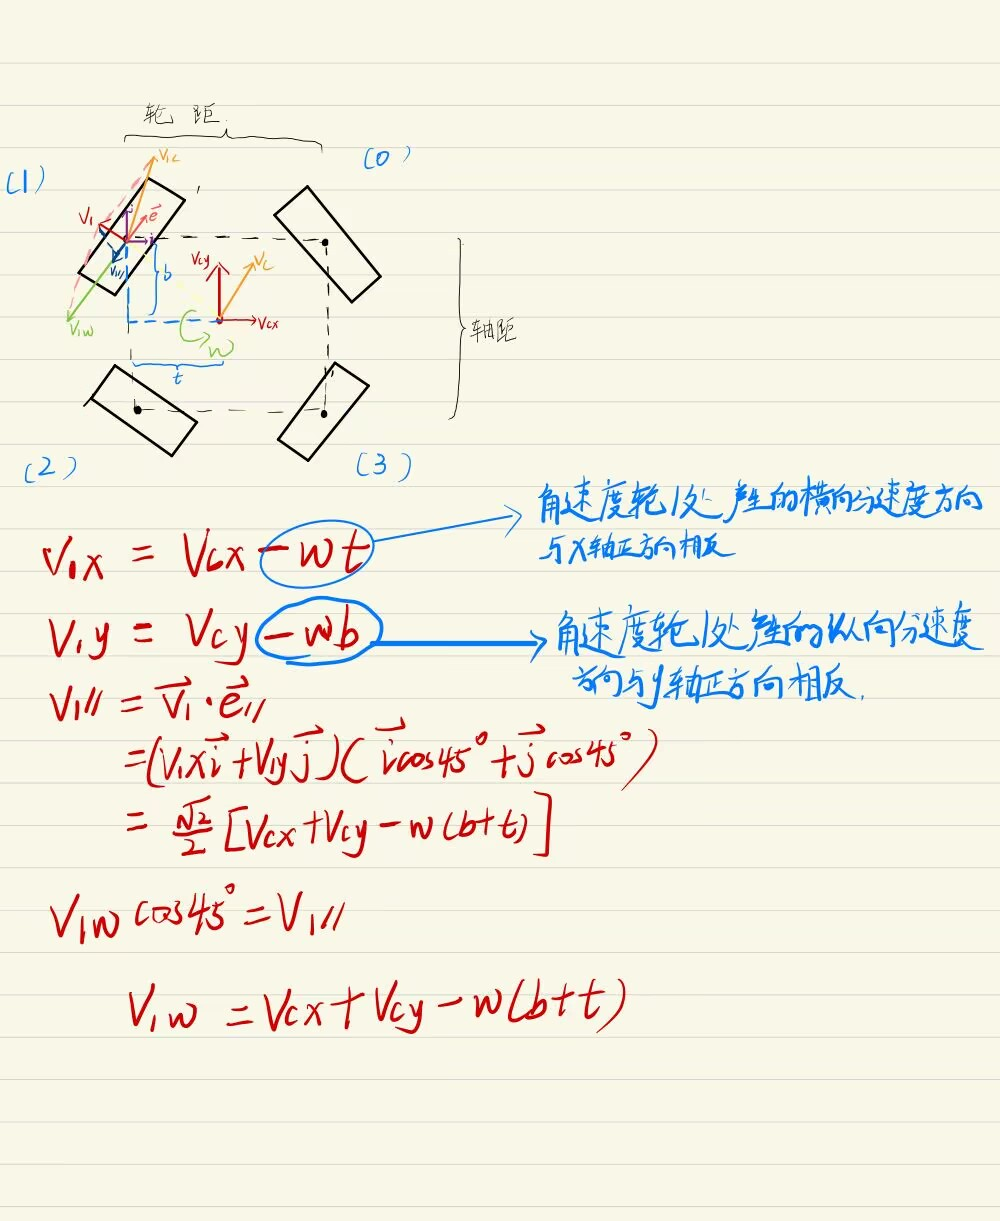 轮 距
(0)
(1)
V₁c
V₁
e⃗
i
V₁//
b
Vcy
Vc
V₁w
Vcx
w
轴距
t
(2)
(3)
角速度轮1处产生的横向分速度方向
与X轴正方向相反
V₁x = Vcx - wt
V₁y = Vcy - wb
角速度轮1处产生的纵向分速度
方向与y轴正方向相反.
V₁// = V⃗₁·e⃗//
=(V₁x i⃗+V₁y j⃗)( i⃗cos45°+j⃗cos45°)
= √2/2 [Vcx+Vcy-w(b+t)]
V₁w cos45°=V₁//
V₁w = Vcx+Vcy-w(b+t)